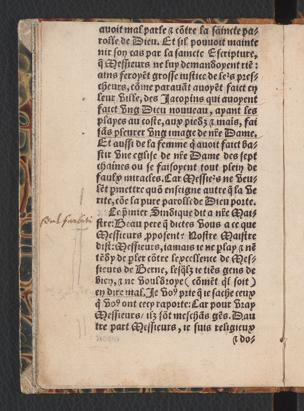 auoit mal parle & cõtre la saincte pa-
rolle de Dieu. Et sil pouuoit mainte
nir son cas par la saincte Escripture,
q̃ Messieurs ne luy demãdoyent riẽ:
ains feroyẽt grosse iustice de le's pres-
cheurs, cõme parauãt auoyẽt faict en
leur Ville, des Jacopins qui auoyent
faict Vng Dieu nouueau, ayant les
playes au coste, aux piedz & mais, fai
sãs pleurer Vng image de nr̃e Dame.
Et aussi de la femme q̃ auoit faict ba-
stir Vne eglise de nr̃e Dame des sept
de
faulx miracles. Car Messie's ne Veu-
lẽt pmettre quõ enseigne autre q̃ la Ve
rite, cõe la pure parolle de Dieu porte.
Le p̃mier Sindique dit a nr̃e Mai-
stre: Beau pere q̃ dictes Vous a ce que
Messieurs pposent? Nostre Maistre
dist: Messieurs, iamais ie ne
de pler cõtre lexcellence de Mes-
sieurs de Berne, tiẽs gens de
bien, & ne
en dire mal. Je Vo9 prie q̃ ie sache ceux
q̃ Vo9 ont ce cy raporte: Car pour Vray
Messieurs, ilz sõt meschãs gẽs. Dau
tre part Messieurs, ie suis religieux
& do-